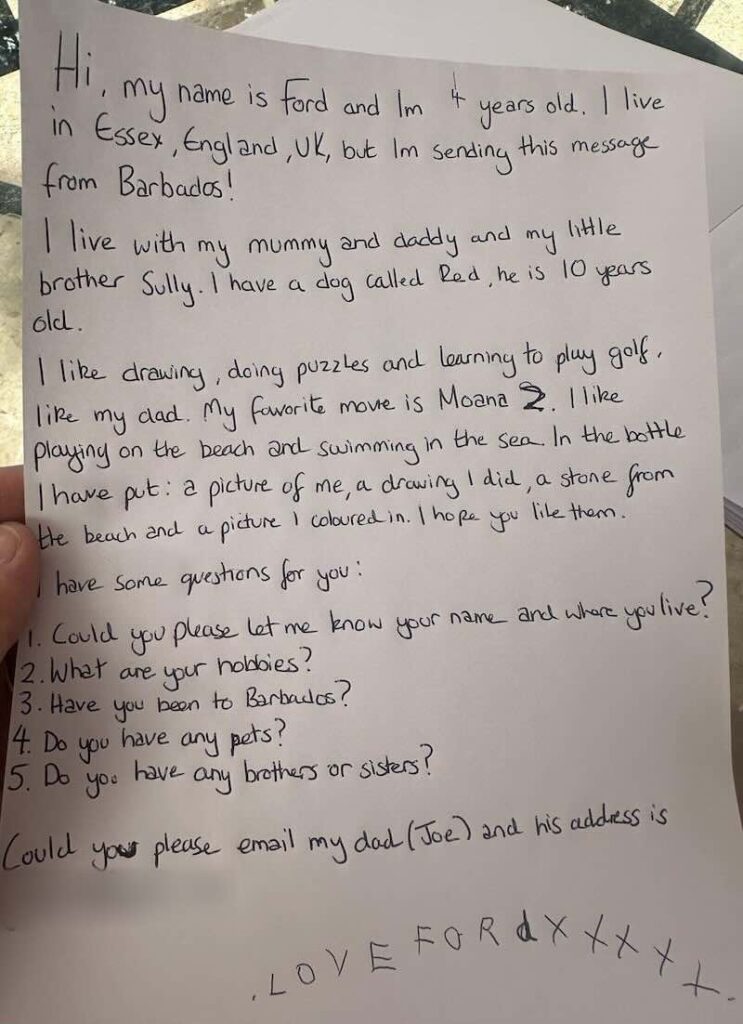 Hi, my name is Ford and Im 4 years old. I live
in Essex, England, UK, but Im sending this message
from Barbados!
I live with my mummy and daddy and my little
brother Sully. I have a dog called Red, he is 10 years
old.
I like drawing, doing puzzles and learning to play golf,
like my dad. My favorite movie is Moana 2. I like
playing on the beach and swimming in the sea. In the bottle
I have put: a picture of me, a drawing I did, a stone from
the beach and a picture I coloured in. I hope you like them.
I have some questions for you:
1. Could you please let me know your name and where you live?
2. What are your hobbies?
3. Have you been to Barbados?
4. Do you have any pets?
5. Do you have any brothers or sisters?
Could you please email my dad (Joe) and his address is
. LOVE FORd X X X X X .